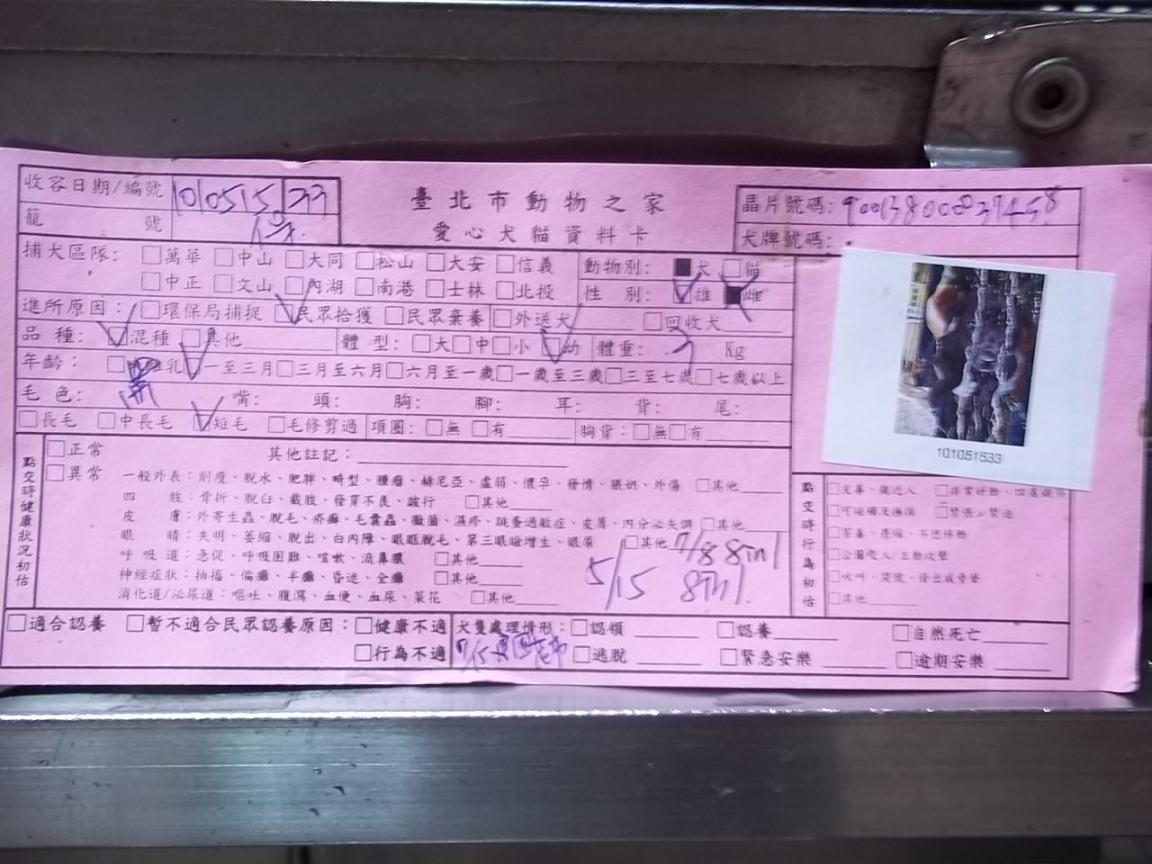 收容日期/編號 1010515 33
籠 號
臺北市動物之家
愛心犬貓資料卡
晶片號碼:
犬牌號碼:
捕犬區隊: □萬華 □中山 □大同 □松山 □大安 □信義
□中正 □文山 □內湖 □南港 □士林 □北投
動物別: ■犬 □貓
性 別: ☑雄 ■雌
進所原因: □環保局捕捉 ☑民眾拾獲 □民眾棄養 □外送犬 □回收犬
品 種: ☑混種 □其他 體 型: □大□中□小☑幼 體重: 3 Kg
年齡: □離乳 ☑一至三月□三月至六月□六月至一歲□一歲至三歲□三至七歲□七歲以上
毛 色: 黑 嘴: 頭: 胸: 腳: 耳: 背: 尾:
□長毛 □中長毛 ☑短毛 □毛修剪過 項圈: □無 □有 胸背: □無□有
101051533
點交時健康狀況初估
□正常 其他註記:
□異常 一般外表: 削瘦、脫水、肥胖、畸型、腫瘤、赫尼亞、虛弱、懷孕、發情、脹奶、外傷 □其他
四 肢: 骨折、脫臼、截肢、發育不良、跛行 □其他
皮 膚: 外寄生蟲、脫毛、疥癬、毛囊蟲、黴菌、濕疹、跳蚤過敏症、皮膚、內分泌失調 □其他
眼 睛: 失明、萎縮、脫出、白內障、眼眶脫毛、第三眼瞼增生、眼屎 □其他
呼吸道: 急促、呼吸困難、咳嗽、流鼻膿 □其他
神經症狀: 抽搐、偏癱、半癱、昏迷、全癱 □其他
消化道/泌尿道: 嘔吐、腹瀉、血便、血尿、菜花 □其他
7/8 8in1
5/15 8in1
點交時行為初估
□其他
□適合認養 □暫不適合民眾認養原因: □健康不適
□行為不適
犬隻處理情形: □認領 □認養 □自然死亡
□逃脫 □緊急安樂 □逾期安樂